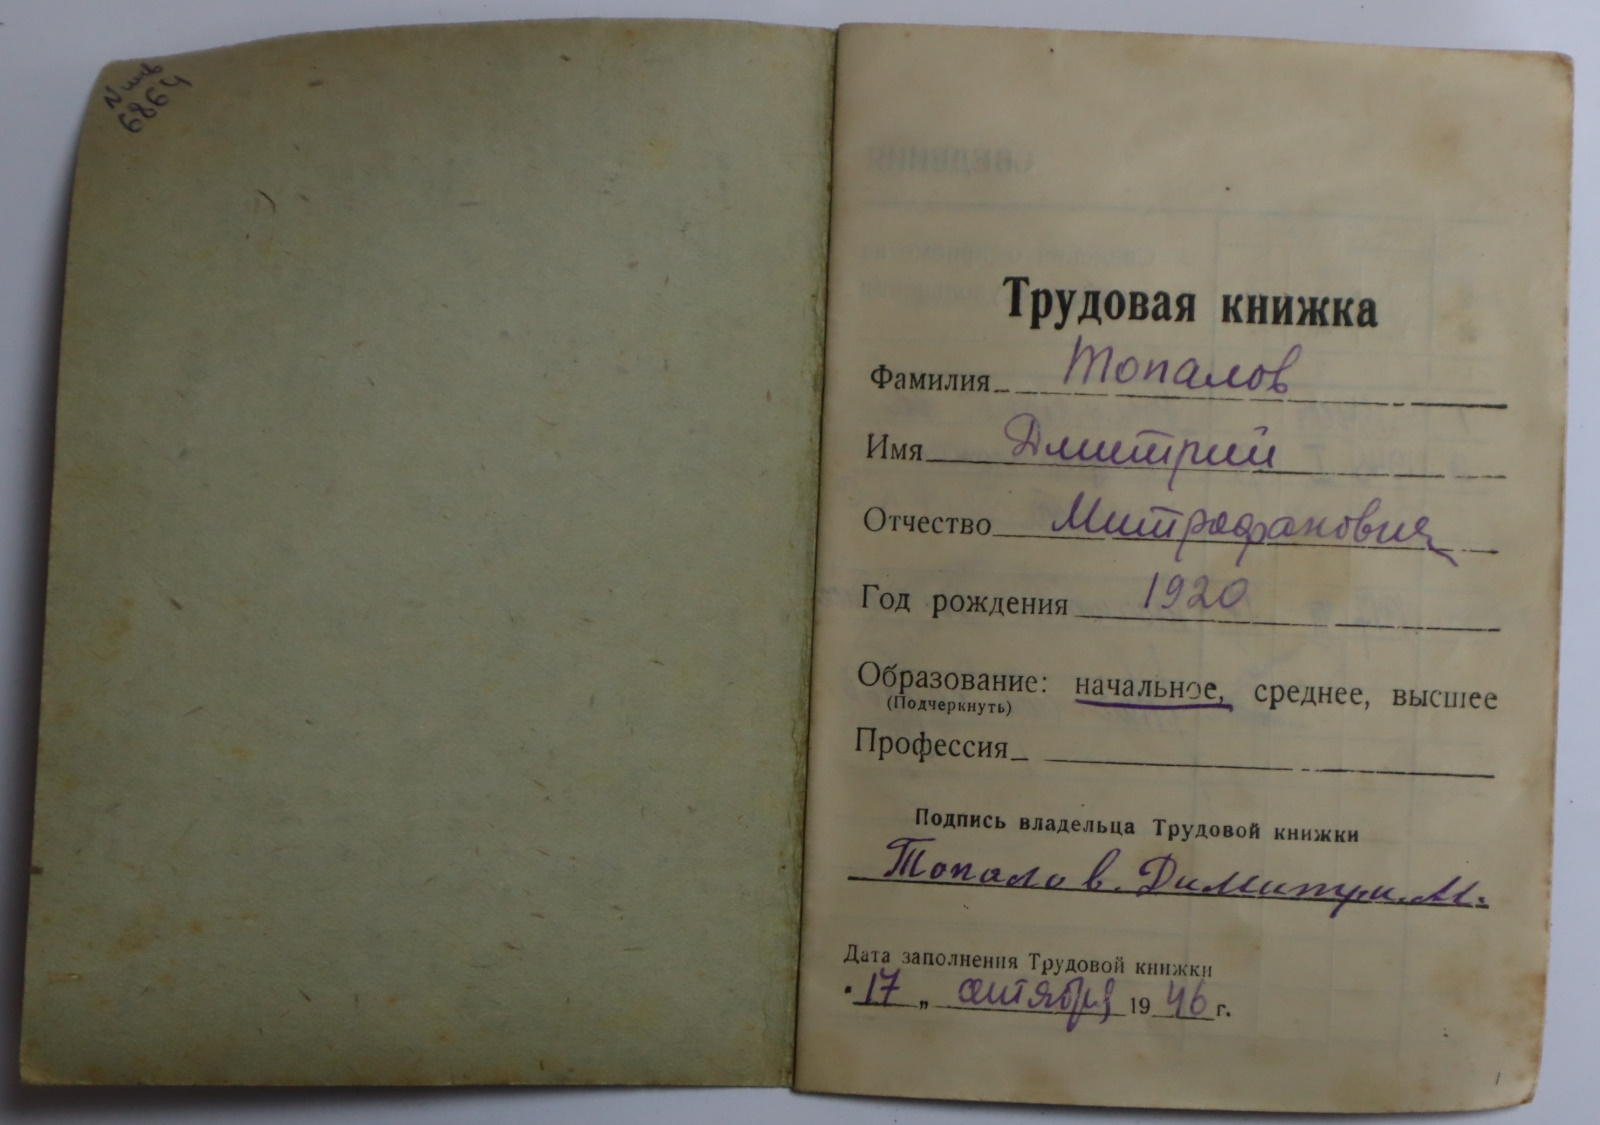 N инв
6864
Трудовая книжка
Фамилия Топалов
Имя Дмитрий
Отчество Митрофанович
Год рождения 1920
Образование: начальное, среднее, высшее
(Подчеркнуть)
Профессия
Подпись владельца Трудовой книжки
Топалов. Димитри. М.
Дата заполнения Трудовой книжки
"17" сентября 1946 г.
1